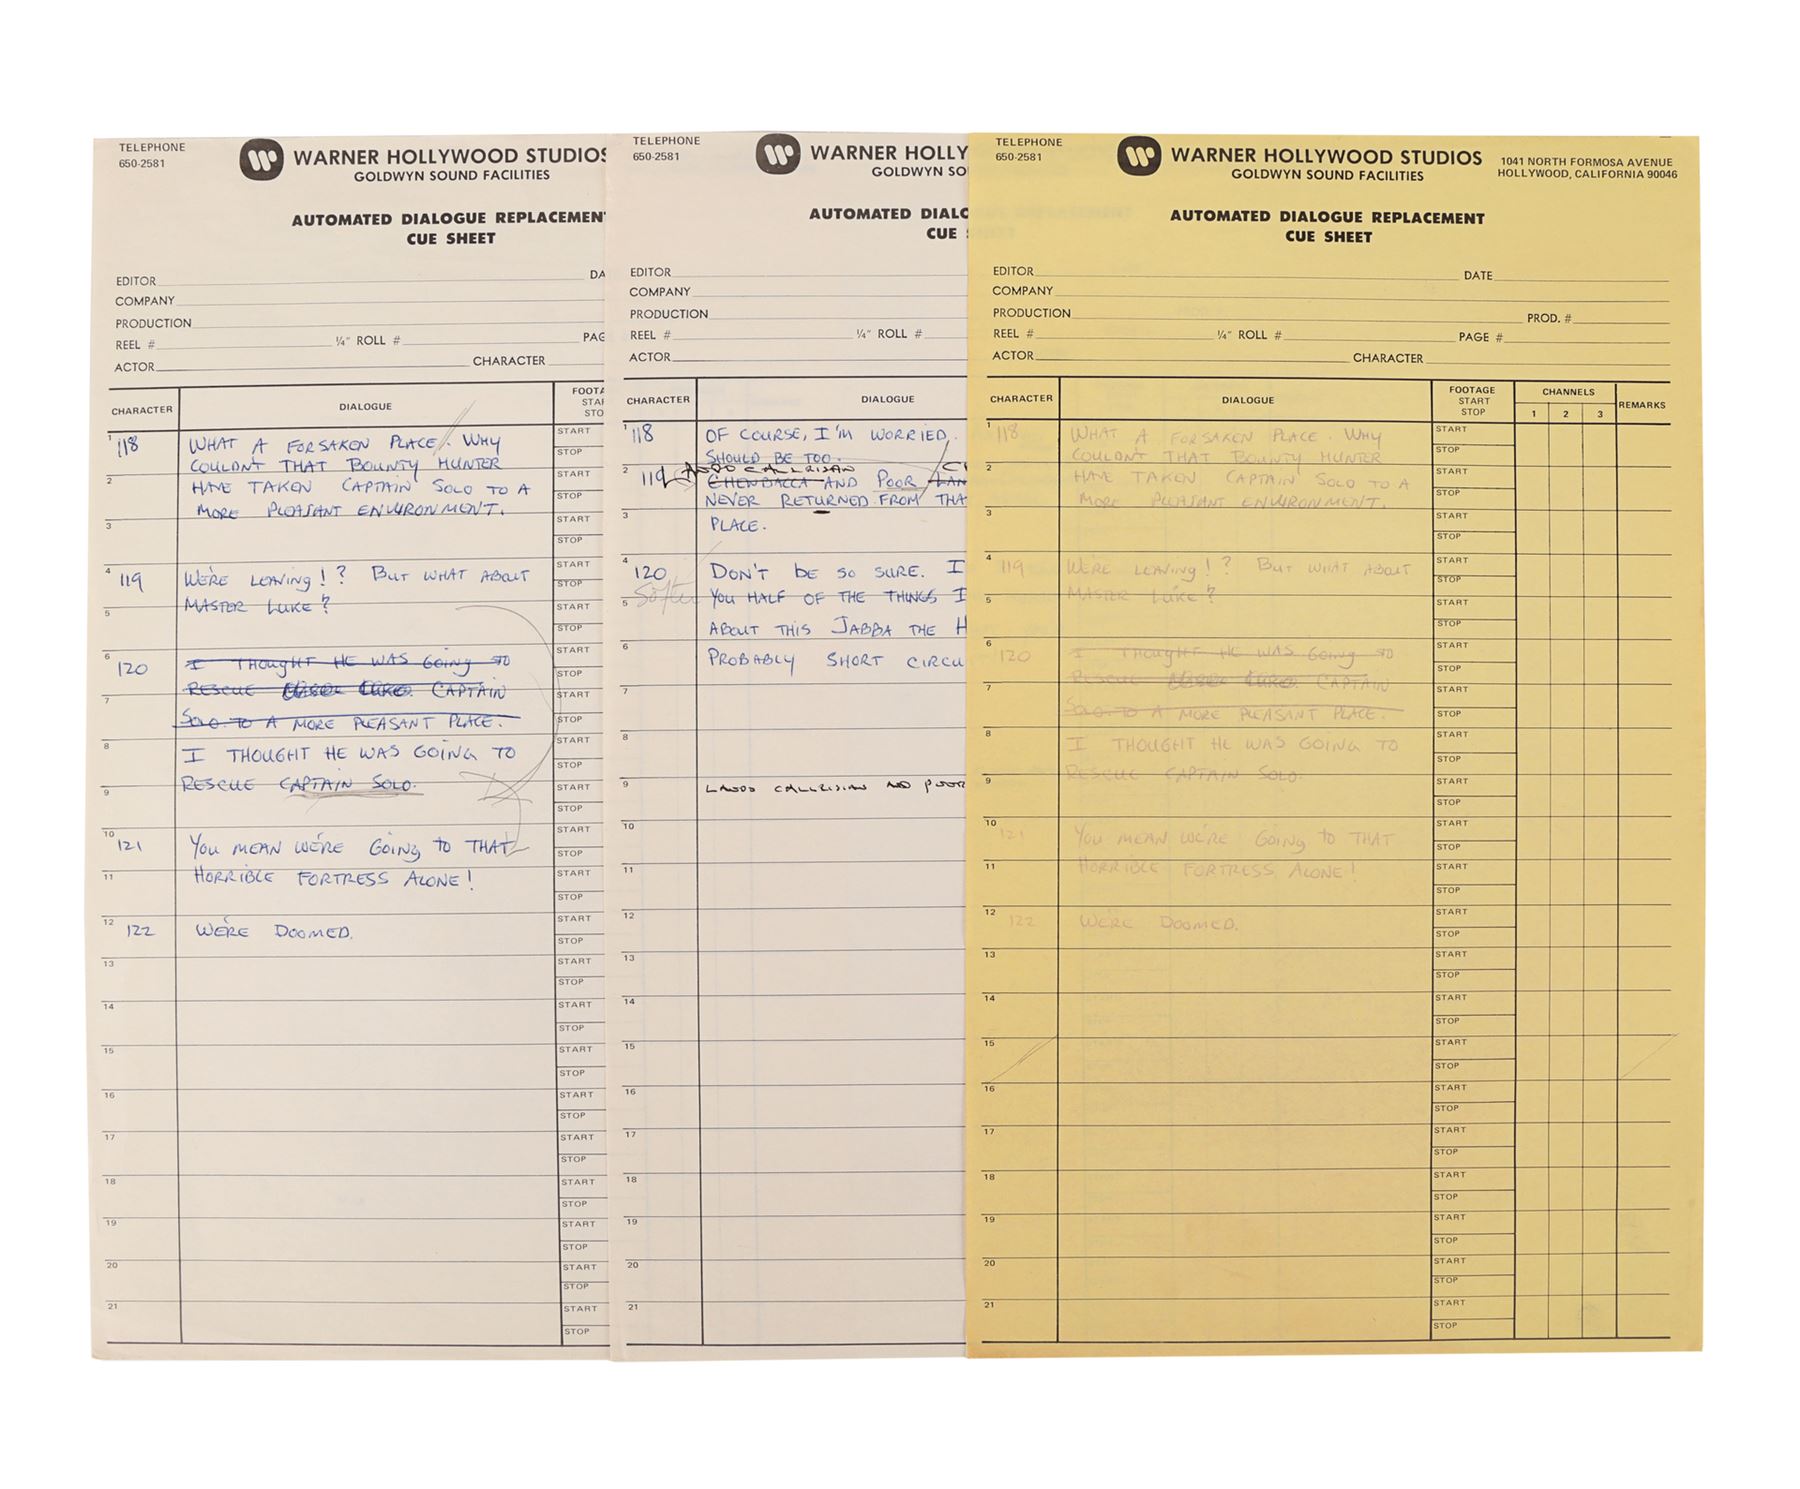 TELEPHONE
650-2581
WARNER HOLLYWOOD STUDIOS
GOLDWYN SOUND FACILITIES
AUTOMATED DIALOGUE REPLACEMENT
CUE SHEET
EDITOR DA
COMPANY
PRODUCTION
REEL # ¼" ROLL # PAG
ACTOR CHARACTER
CHARACTER DIALOGUE FOOTA
STAR
STO
1 118 WHAT A FORSAKEN PLACE. WHY START
COULDN'T THAT BOUNTY HUNTER STOP
2 HAVE TAKEN CAPTAIN SOLO TO A START
MORE PLEASANT ENVIRONMENT. STOP
3 START
STOP
4 119 WE'RE LEAVING!? BUT WHAT ABOUT START
STOP
5 MASTER LUKE? START
STOP
6 120 I THOUGHT HE WAS GOING TO START
STOP
7 RESCUE LUKE. CAPTAIN START
SOLO. TO A MORE PLEASANT PLACE. STOP
8 I THOUGHT HE WAS GOING TO START
STOP
9 RESCUE CAPTAIN SOLO. START
STOP
10 121 YOU MEAN WE'RE GOING TO THAT START
STOP
11 HORRIBLE FORTRESS ALONE! START
STOP
12 122 WE'RE DOOMED. START
STOP
13 START
STOP
14 START
STOP
15 START
STOP
16 START
STOP
17 START
STOP
18 START
STOP
19 START
STOP
20 START
STOP
21 START
STOP
TELEPHONE
650-2581
WARNER HOLLY
GOLDWYN SO
AUTOMATED DIALO
CUE
EDITOR
COMPANY
PRODUCTION
REEL # ¼" ROLL #
ACTOR
CHARACTER DIALOGUE
1 118 OF COURSE, I'M WORRIED.
SHOULD BE TOO.
LANDO CALLRISIAN C
2 119 CHEWBACCA AND POOR LAN
NEVER RETURNED FROM THA
3 PLACE.
4 120 DON'T BE SO SURE. I
5 Softer YOU HALF OF THE THINGS I
ABOUT THIS JABBA THE H
6 PROBABLY SHORT CIRCU
7
8
9 LANDO CALLRISIAN AND POOR
10
11
12
13
14
15
16
17
18
19
20
21
TELEPHONE
650-2581
WARNER HOLLYWOOD STUDIOS
GOLDWYN SOUND FACILITIES
1041 NORTH FORMOSA AVENUE
HOLLYWOOD, CALIFORNIA 90046
AUTOMATED DIALOGUE REPLACEMENT
CUE SHEET
EDITOR DATE
COMPANY
PRODUCTION PROD. #
REEL # ¼" ROLL # PAGE #
ACTOR CHARACTER
CHARACTER DIALOGUE FOOTAGE CHANNELS REMARKS
START
STOP 1 2 3
1 118 WHAT A FORSAKEN PLACE. WHY START
COULDN'T THAT BOUNTY HUNTER STOP
2 HAVE TAKEN CAPTAIN SOLO TO A START
MORE PLEASANT ENVIRONMENT. STOP
3 START
STOP
4 119 WE'RE LEAVING!? BUT WHAT ABOUT START
STOP
5 MASTER LUKE? START
STOP
6 120 I THOUGHT HE WAS GOING TO START
STOP
7 RESCUE LUKE. CAPTAIN START
SOLO. TO A MORE PLEASANT PLACE. STOP
8 I THOUGHT HE WAS GOING TO START
STOP
9 RESCUE CAPTAIN SOLO. START
STOP
10 121 YOU MEAN WE'RE GOING TO THAT START
STOP
11 HORRIBLE FORTRESS ALONE! START
STOP
12 122 WE'RE DOOMED. START
STOP
13 START
STOP
14 START
STOP
15 START
STOP
16 START
STOP
17 START
STOP
18 START
STOP
19 START
STOP
20 START
STOP
21 START
STOP